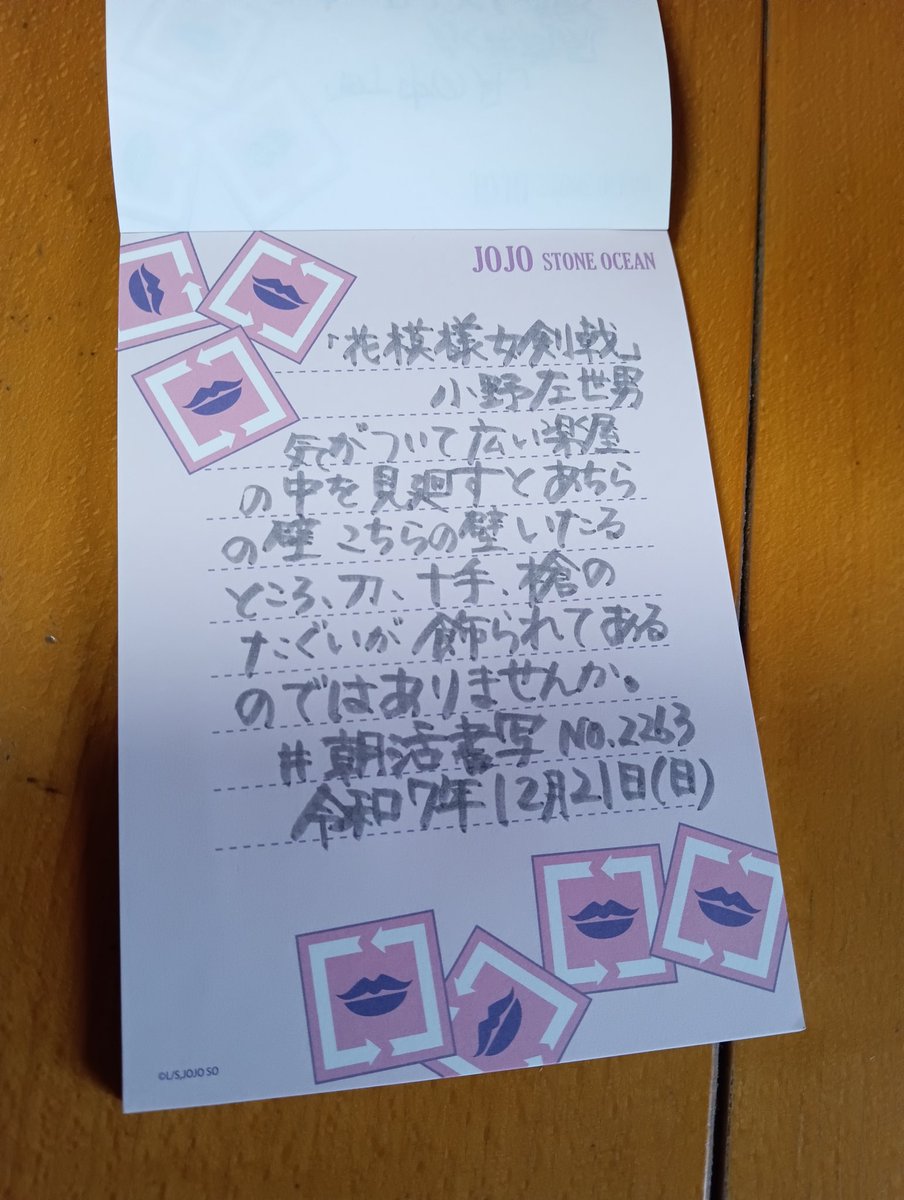 JOJO STONE OCEAN
「花模様女剣戟」
小野左世男
気がついて広い楽屋
の中を見廻すとあちら
の壁こちらの壁いたる
ところ、刀、十手、槍の
たぐいが飾られてある
のではありませんか。
#朝活書写 NO.2263
令和7年12月21日(日)
©L/S,JOJO SO